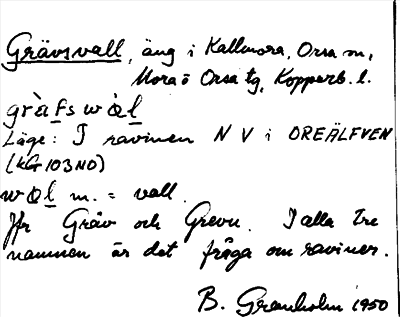 Grävsvall, äng i Kallmora, Orsa sn,
Mora o Orsa tg, Kopparb. l.
gràfs wàl
Läge: I ravinen N V i OREÄLFVEN
(KG 103 NO)
wàl m. = vall.
Jfr Gräv och Grevu. I alla tre
namnen är det fråga om raviner.
B. Granholm 1950